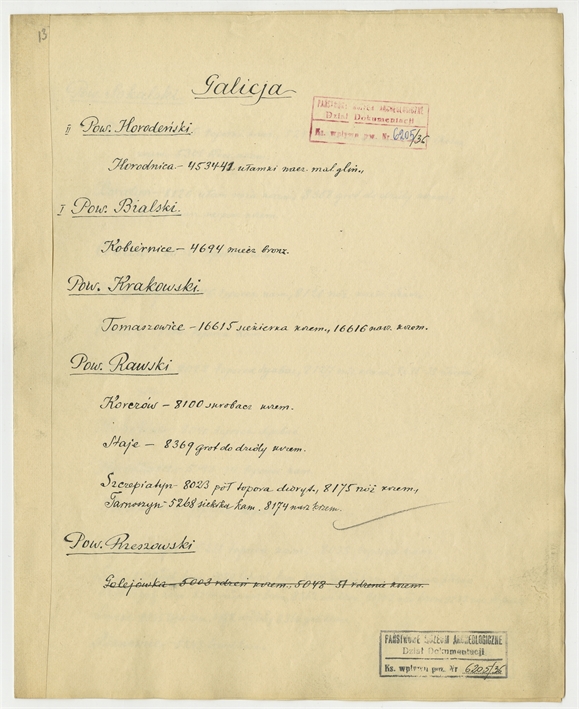 13
Galicja
PAŃSTWOWE MUZEUM ARCHEOLOGICZNE
Dział Dokumentacji
Ks. wpływu pw. Nr 6205/36
II Pow. Horodeński.
Horodnica – 453441 ułamki nacz mal. glin.,
I Pow. Bialski.
Kobiernice – 4694 miecz bronz.
Pow. Krakowski.
Tomaszowice – 16615 siekierka krzem., 16616 narz. krzem.
Pow. Rawski
Korczów – 8100 skrobacz krzem.
Staje – 8369 grot do dzidy krzem.
Szczepiatyn – 8023 pół topora dioryt., 8175 nóż krzem.,
Tarnoszyn – 5268 siekierka kam. 8174 narz. krzem.
Pow. Rzeszowski
Golejówka – 5003 rdzeń krzem., 5048 – 51 rdzenie krzem.
PAŃSTWOWE MUZEUM ARCHEOLOGICZNE
Dział Dokumentacji
Ks. wpływu pw. Nr 6205/36